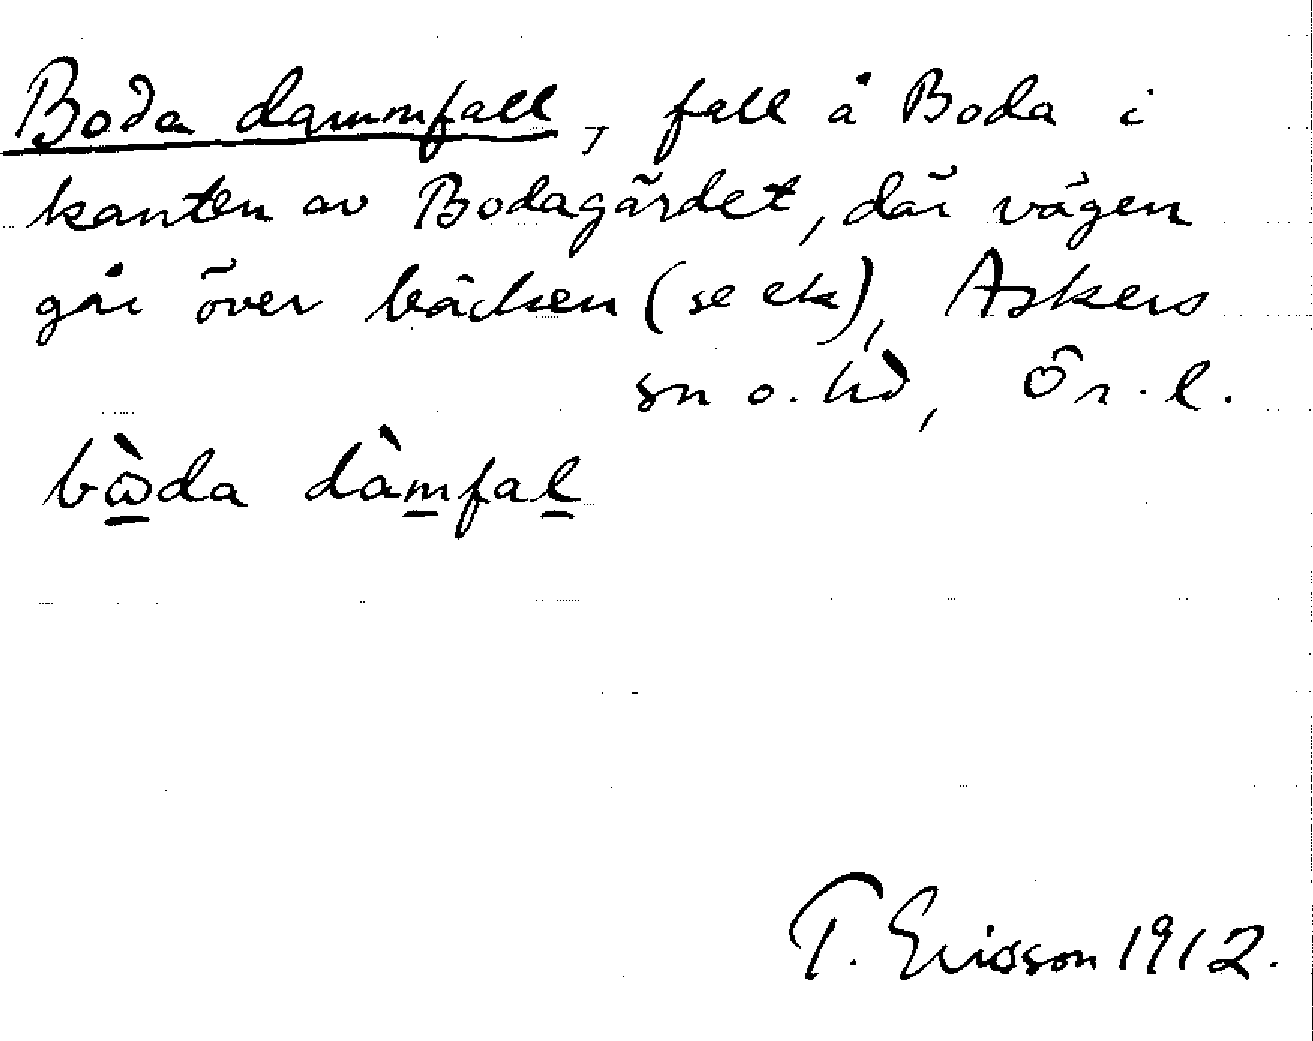 Boda dammfall, fall å Boda i
kanten av Bodagärdet, där vägen
går över bäcken (se ek), Askers
sn o. hd, Ör. l.
bὼda dàmfal
T. Ericsson 1912.